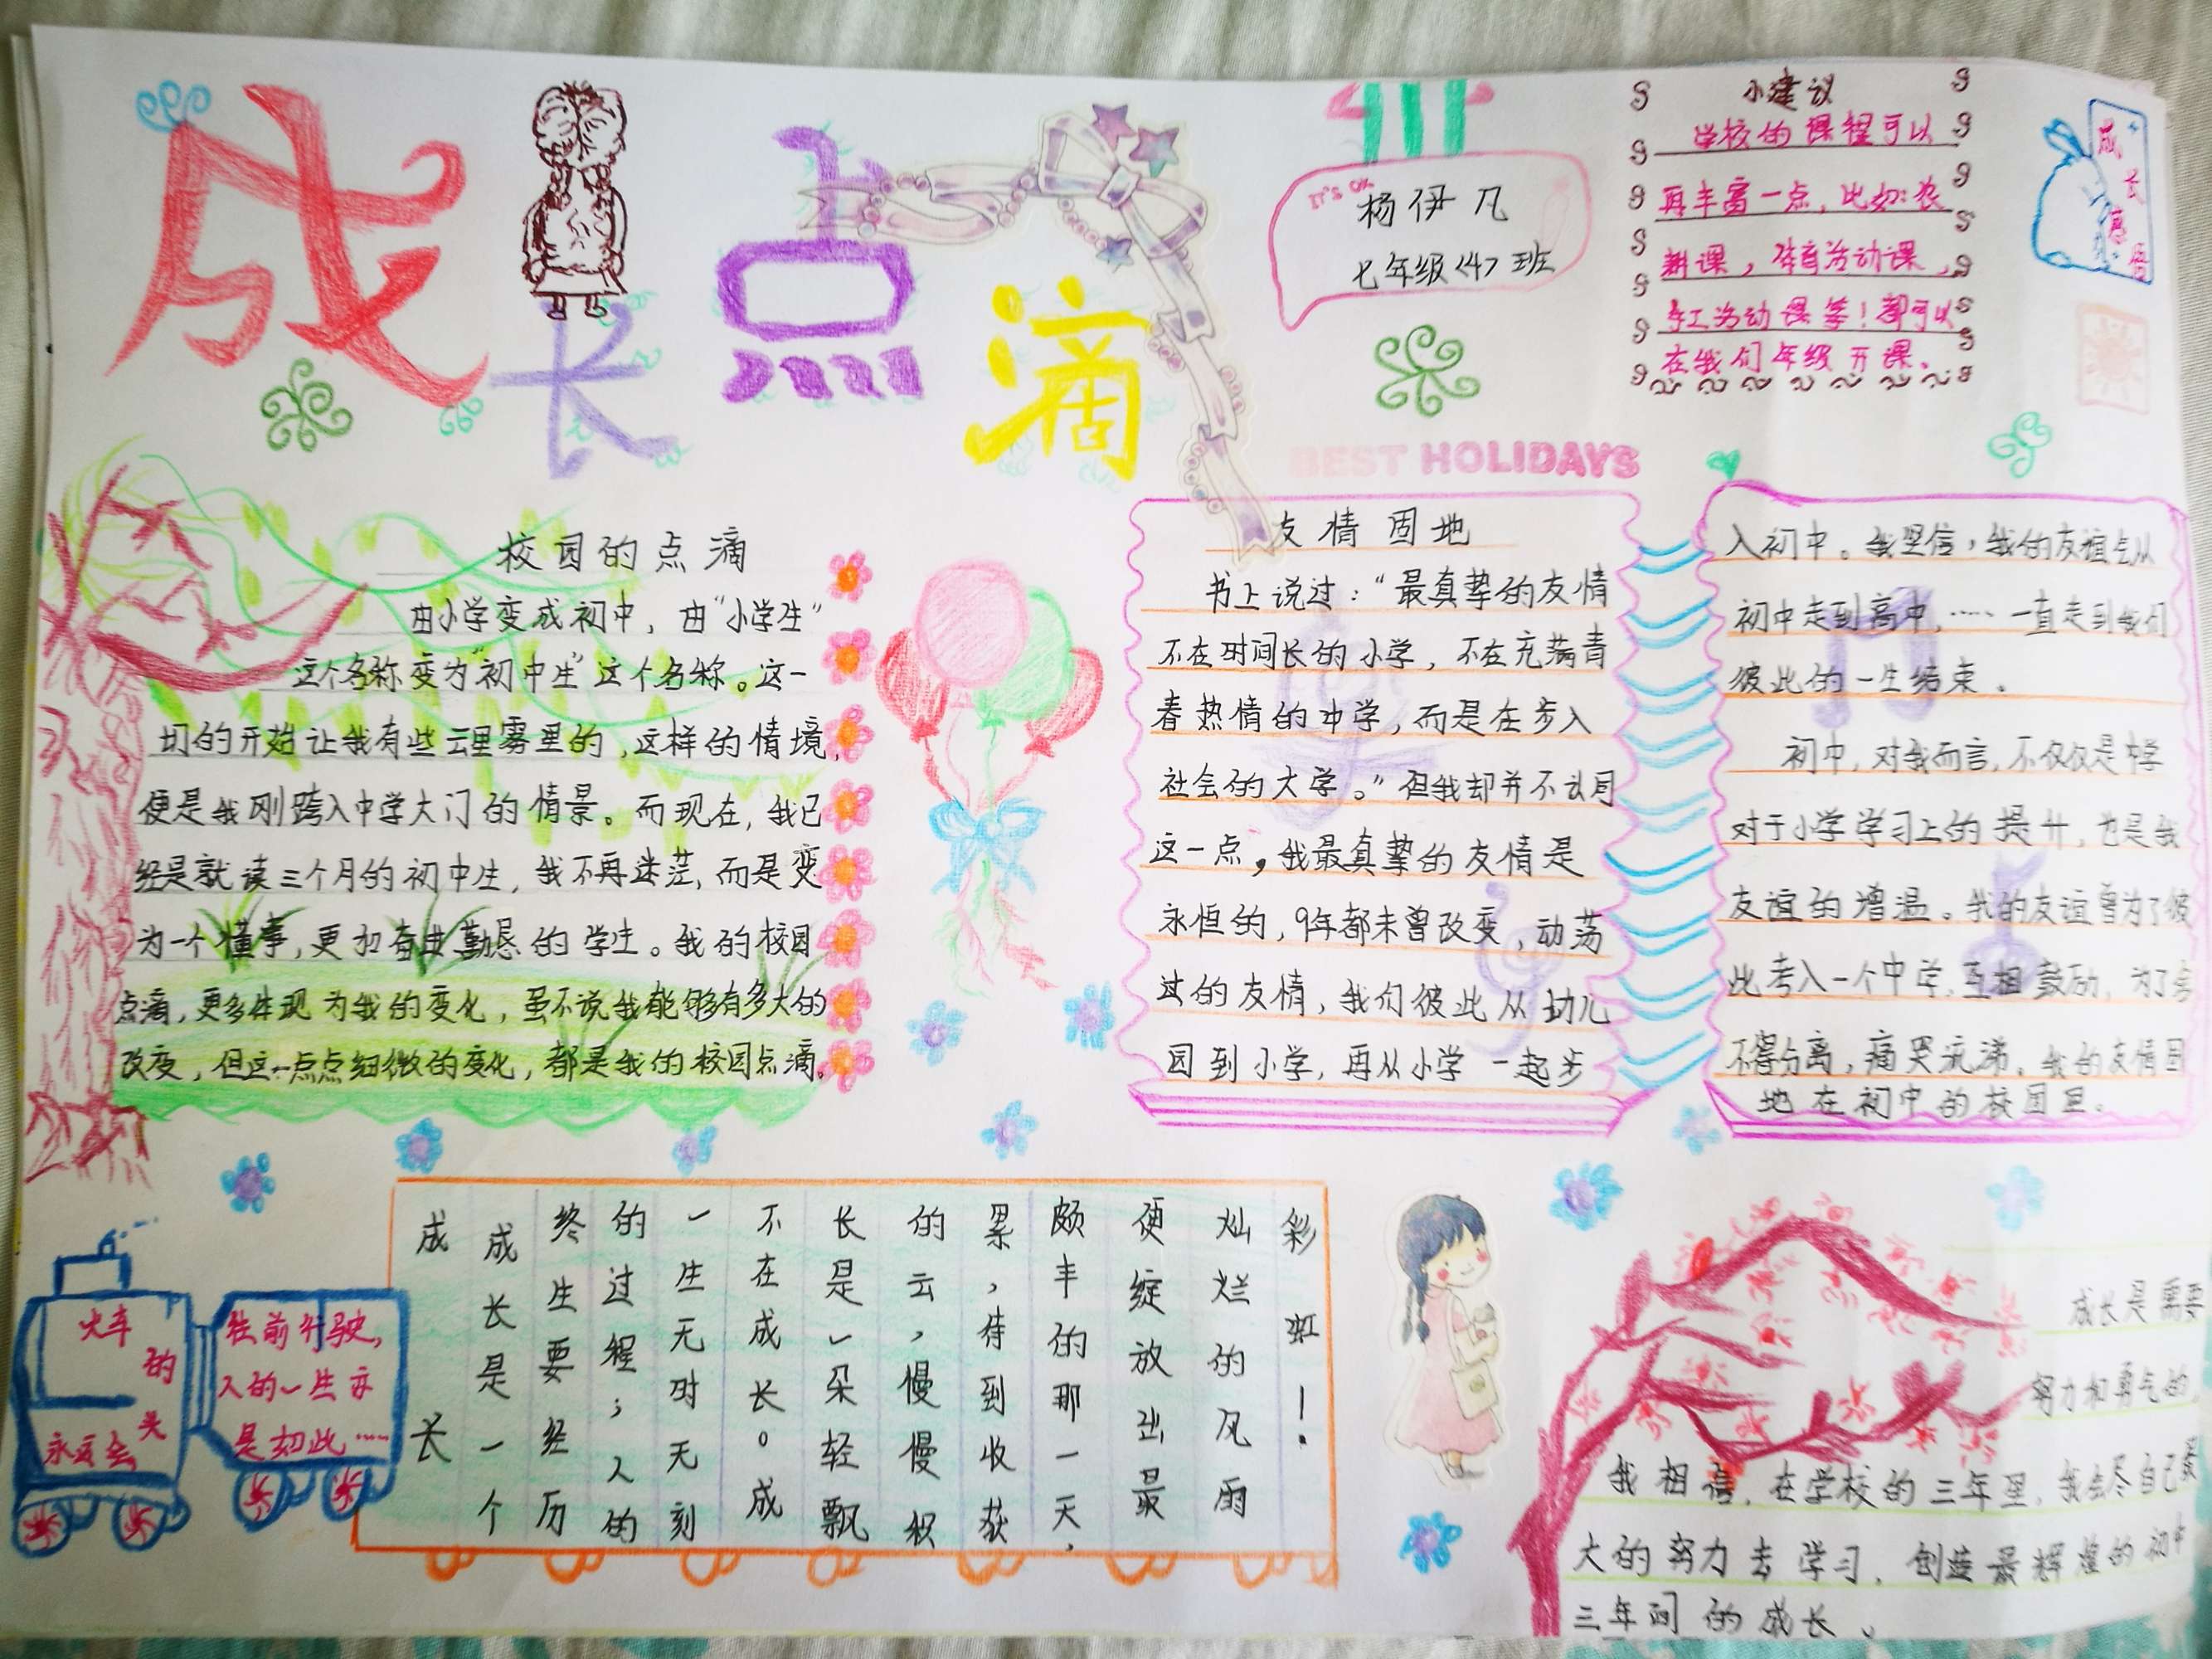 成长点滴
IT'S OK
杨伊凡
七年级<4>班
小建议
学校的课程可以
再丰富一点,比如:农
耕课,体育活动课、
手工活动课等!都可以
在我们年级开课。
成长感悟
BEST HOLIDAYS
校园的点滴
由小学变成初中,由“小学生”
这个名称变为“初中生”这个名称。这一
切的开始让我有些云里雾里的,这样的情境,
便是我刚跨入中学大门的情景。而现在,我已
经是就读三个月的初中生,我不再迷茫,而是变
为一个懂事,更加奋进勤恳的学生。我的校园
点滴,更多体现为我的变化,虽不说我能够有多大的
改变,但这一点点细微的变化,都是我的校园点滴。
友情固地
书上说过:“最真挚的友情
不在时间长的小学,不在充满青
春热情的中学,而是在步入
社会的大学。”但我却并不认同
这一点,我最真挚的友情是
永恒的,9年都未曾改变,动荡
过的友情,我们彼此从幼儿
园到小学,再从小学一起步
入初中。我坚信,我的友谊会从
初中走到高中,……一直走到我们
彼此的一生结束。
初中,对我而言,不仅仅是中学
对于小学学习上的提升,也是我
友谊的增温。我的友谊曾为了彼
此考入一个中学,互相鼓励,为了舍
不得分离,痛哭流涕。我的友情固
地在初中的校园里。
火车
的
头
永远会
往前行驶,
人的一生亦
是如此……
成长
成长是一个
终生要经历
的过程;人的
一生无时无刻
不在成长。成
长是一朵轻飘
的云,慢慢积
累,待到收获
颇丰的那一天,
便绽放出最
灿烂的风雨
彩虹!
成长是需要
努力和勇气的,
我相信,在学校的三年里,我会尽自己最
大的努力去学习,创造最辉煌的初中
三年间的成长。